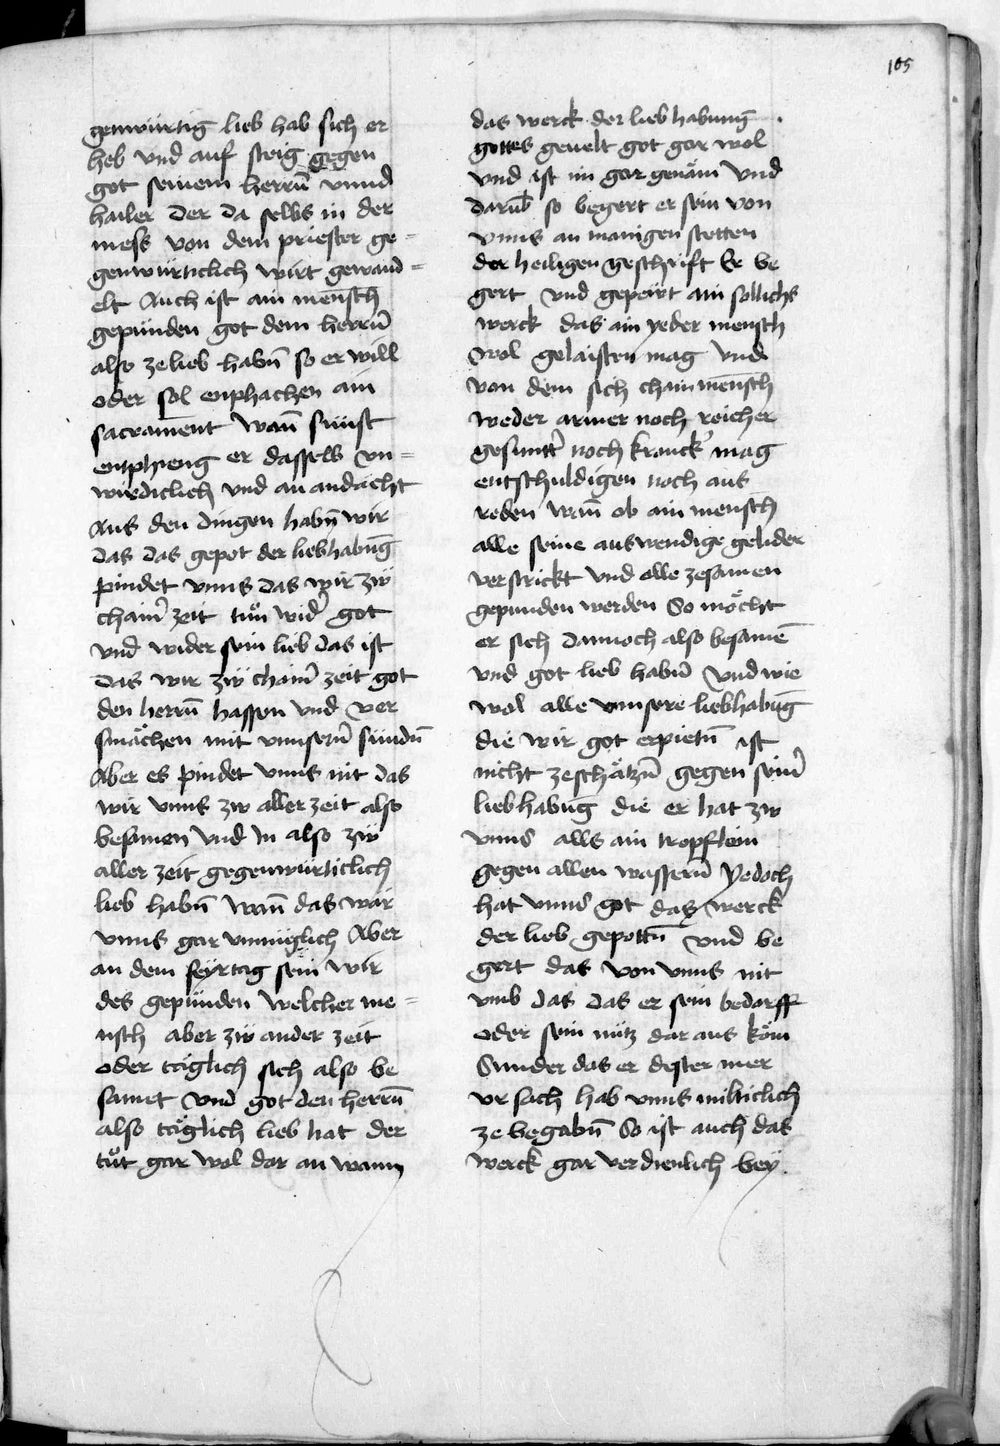 105
genwürtig lieb hab sich er
heb vnd auf steig gegen
got seinem herrn̄ vnnd
hailer der da selbs in der
mess von dem priester ge=
genwürticlich wirt gewand=
elt Auch ist ain mensch
gepunden got dem herrn̄
also ze lieb habn̄ so er will
oder sol enphachen ain
sacrament wan̄ sunst
entphieng er dasselb vn=
wirdiclich vnd an andacht
Aus den dingen habn̄ wir
das das gepot der liebhabūg
pindet vnns das wir zw
chainer zeit tün wider got
vnd wider sein lieb das ist
das wir zw chainer zeit got
den herrn̄ hassen vnd ver
smächen mit vnnsern̄ sündn̄
Aber es pindet vnns nit das
wir vnns zw aller zeit also
besamen vnd in also zw
aller zeit gegenwürticlich
lieb habn̄ wan̄ das wär
vnns gar vnmüglich Aber
an dem feyrtag sein wir
des gepunden welcher me=
nsch aber zw ander zeit
oder täglich sich also be
samet vnd got den herrn̄
also täglich lieb hat der
tüt gar wol dar an wann
das werck der lieb habung
gottes geuelt got gar wol
vnd ist im gar genäm vnd
darūb so begert er sein von
vnns an manigen stetten
der heiligen geschrift Er be
gert vnd gepewt ain sollichs
werck das ain yeder mensch
wol gelaisten mag vnd
von dem sich chain mensch
weder armer noch reicher
gesunter noch krancker mag
entschuldigen noch aus
reden wan̄ ob ain mensch
alle seine auswendige gelider
verstrickt vnd alle zesamen
gepunden werden So möcht
er sich dannoch also besamē
vnd got lieb habn̄ vnd wie
wol alle vnnsere liebhabūg
die wir got erpietn̄ ist
nicht zeschätzn̄ gegen seiner
liebhabūg die er hat zw
vnns alls ain tropflein
gegen allen wassern̄ Yedoch
hat vnns got das werck
der lieb gepottn̄ vnd be
gert das von vnns nit
vmb das das er sein bedarff
oder sein nütz dar aus köm
Sunder das er dester mer
vrsach hab vnns milticlich
ze begabn̄ So ist auch das
werck gar verdienlich bey